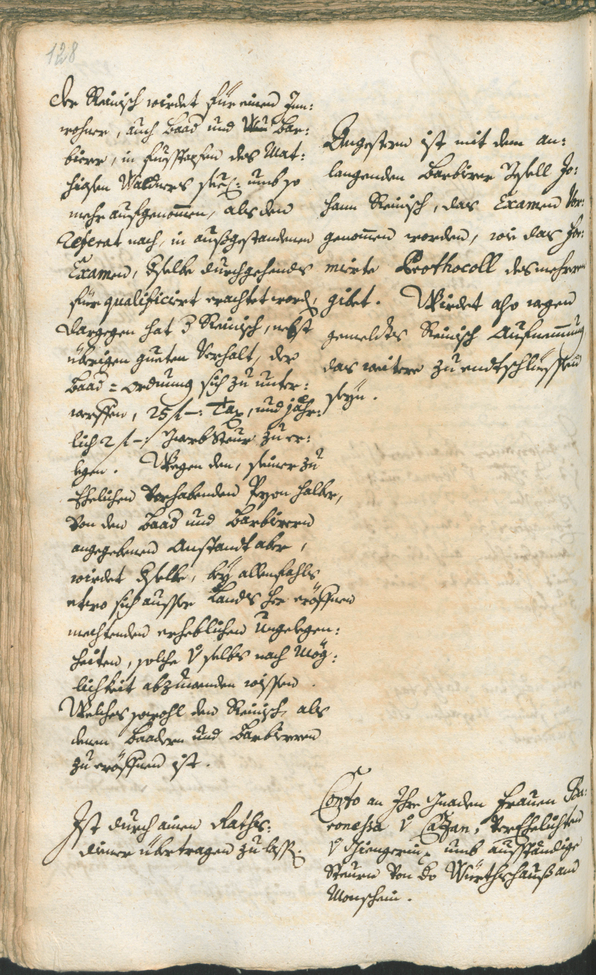 128
der Reinisch wirdet für einen Inn:
wohner, auch Baad und Bar:
bierer, in fuesstapfen des Mat:
thiasen Waldners seel: umb so
mehr aufgenommen, als den
Referat nach, in ausgestandenem
Examen, dselbe durchgehends
für qualificiert erachtet word,
dargegen hat d Reinisch, nebst
übrigen gueten Verhalt, der
Baad=ordnung sich zu unter:
werffen, 25 f–: Tax, und jähr:
lich 2 f–: Gwerbsteur zu er:
legen. Wegen den, seiner zu
Ehelichen vorhabenden Persohn halber,
von den Baad und Barbierern
angegebenen Anstandt aber,
wirdet dselbe, bey allenfahls
etwo sich ausser Lands her eröffnen
mechtenden erheblichen Ungelegen:
heiten, solche selbs nach Mög:
lichkeit abzuwenden wissen.
Welches sowohl den Reinisch, als
denen Baadern und Barbierern
zu eröffnen ist.
Ist durch ainen Raths:
diener übertragen zu lassen
Vorgestern ist mit dem an:
langenden Barbierer Gsell Jo:
hann Reinisch, das Examen vor:
genommen worden, wie das
Prothocoll des mehrern
gibet. Wirdet also wegen
gemeldtes Reinisch Aufnemmung
das weitere zu endtschliessen
seyn.
Conto an Ihr Gnaden Frauen Ba:
ronessa v , verehelichten
v , umb ausständige
Steuern von do Würthshaus am
Monschein.